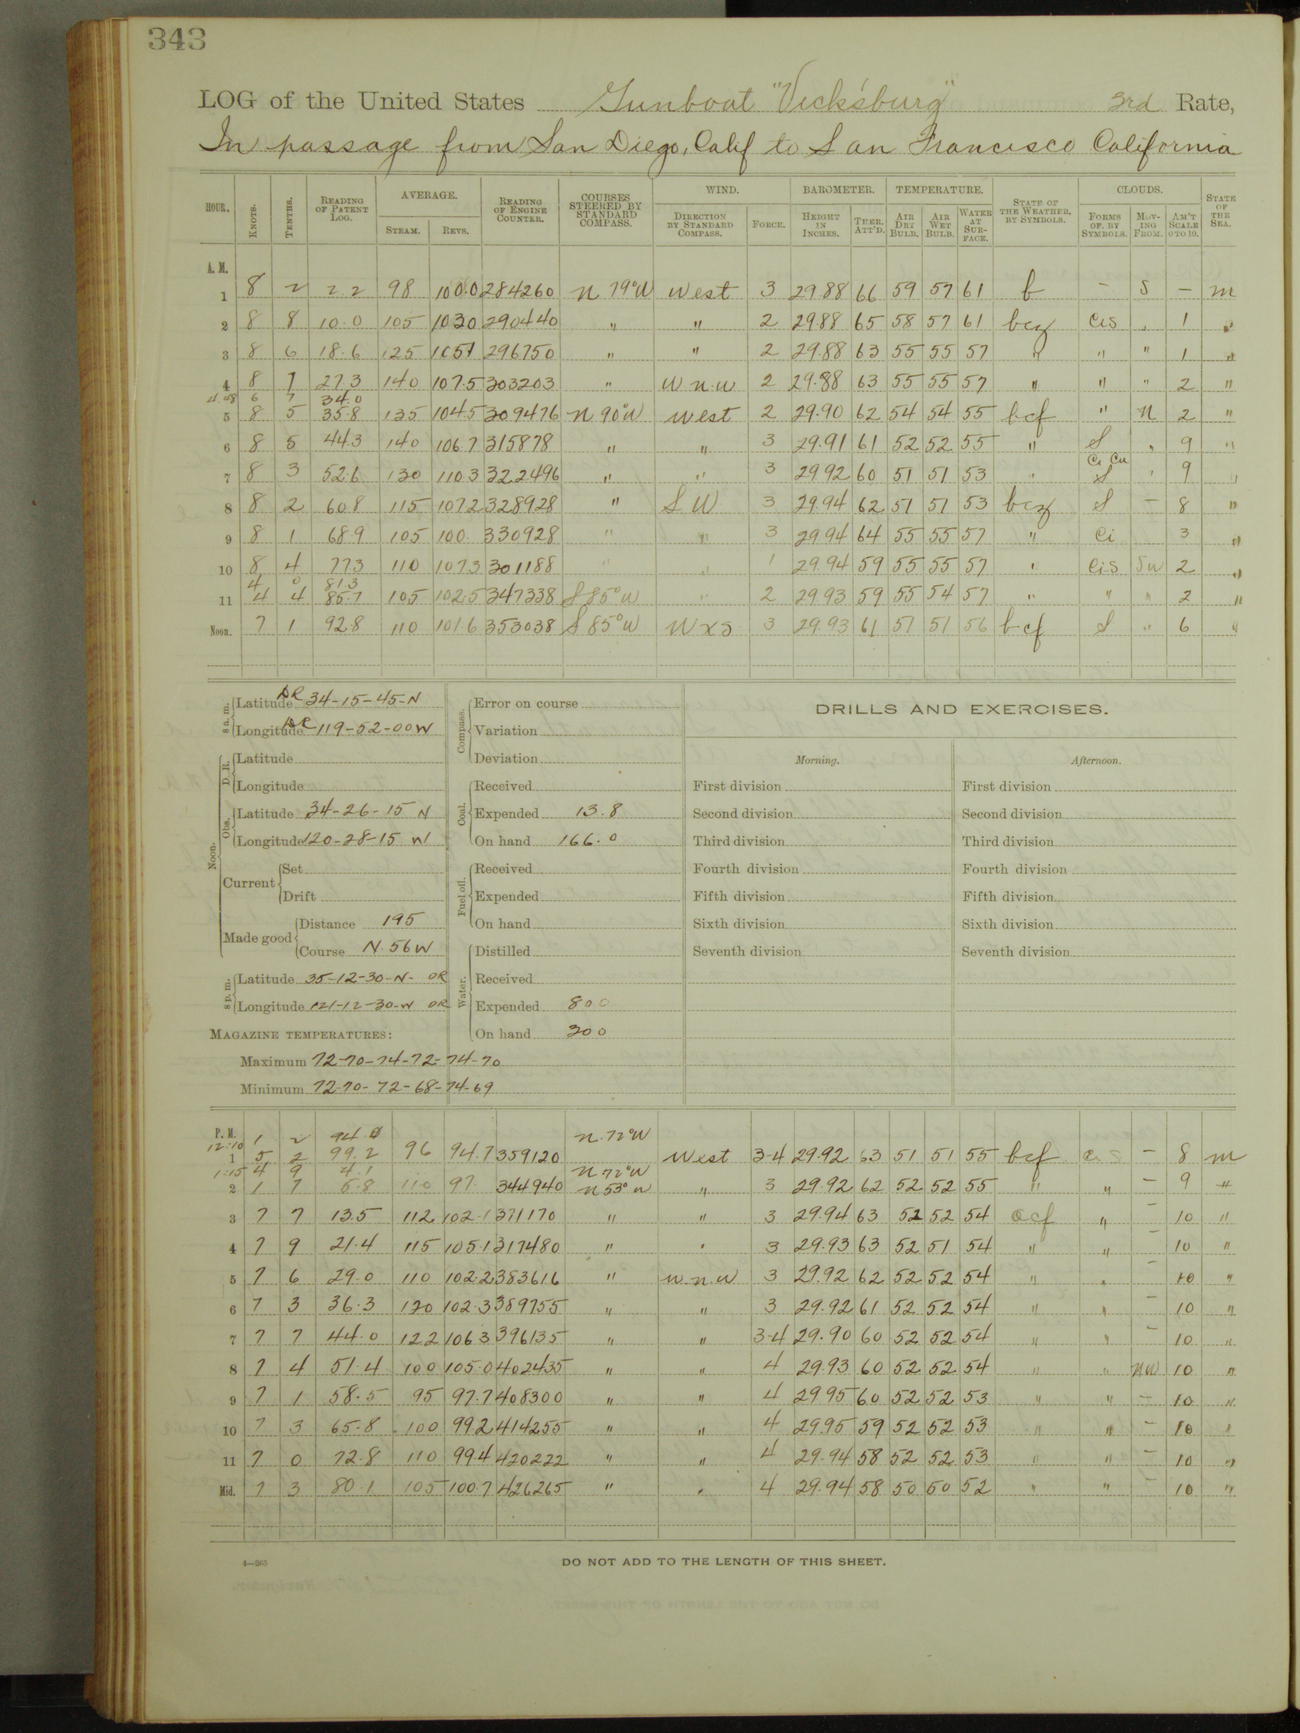 343
LOG of the United States Gunboat "Vicksburg" 3rd Rate,
In passage from San Diego, Calif to San Francisco California
HOUR. KNOTS. TENTHS. READING OF PATENT LOG. AVERAGE. STEAM. REVS. READING OF ENGINE COUNTER. COURSES STEERED BY STANDARD COMPASS. WIND. DIRECTION BY STANDARD COMPASS. FORCE. BAROMETER. HEIGHT IN INCHES. THER. ATT'D. TEMPERATURE. AIR DRY BULB. AIR WET BULB. WATER AT SURFACE. STATE OF THE WEATHER, BY SYMBOLS. CLOUDS. FORMS OF, BY SYMBOLS. MOVING FROM. AM'T SCALE 0 TO 10. STATE OF THE SEA.
A. M.
1 8 2 2.2 98 100.0 284260 N 79°W West 3 29.88 66 59 57 61 b - S - m
2 8 8 10.0 105 103.0 290440 " " 2 29.88 65 58 57 61 bcz Cis " 1 "
3 8 6 18.6 125 105.1 296750 " " 2 29.88 63 55 55 57 " " " 1 "
4 8 7 27.3 140 107.5 303203 " W.N.W 2 29.88 63 55 55 57 " " " 2 "
4.48 6 7 34.0
5 8 5 35.8 135 104.5 309476 N 90°W West 2 29.90 62 54 54 55 bcf " N 2 "
6 8 5 44.3 140 106.7 315878 " " 3 29.91 61 52 52 55 " S " 9 "
7 8 3 52.6 130 110.3 322496 " " 3 29.92 60 51 51 53 " Ci Cu S " 9 "
8 8 2 60.8 115 107.2 328928 " SW 3 29.94 62 51 51 53 bcz S - 8 "
9 8 1 68.9 105 100. 330928 " " 3 29.94 64 55 55 57 " Ci 3 "
10 8 4 77.3 110 107.3 301188 " " 1 29.94 59 55 55 57 " Cis SW 2 "
4 0 81.3
11 4 4 85.7 105 102.5 347338 S 85°W " 2 29.93 59 55 54 57 " " " 2 "
Noon. 7 1 92.8 110 101.6 353038 S 85°W WxS 3 29.93 61 51 51 56 bcf S " 6 "
8 a. m. Latitude DR 34-15-45-N
Longitude DR 119-52-00W
Noon. D. R. Latitude
Longitude
Obs. Latitude 34-26-15 N
Longitude 120-28-15 W
Current Set
Drift
Made good Distance 195
Course N. 56 W
8 p. m. Latitude 35-12-30-N- DR
Longitude 121-12-30-W DR
MAGAZINE TEMPERATURES:
Maximum 72-70-74-72-74-70
Minimum 72-70-72-68-74-69
Compass. Error on course
Variation
Deviation
Coal. Received
Expended 13.8
On hand 166.0
Fuel oil. Received
Expended
On hand
Water. Distilled
Received
Expended 800
On hand 300
DRILLS AND EXERCISES.
Morning. Afternoon.
First division First division
Second division Second division
Third division Third division
Fourth division Fourth division
Fifth division Fifth division
Sixth division Sixth division
Seventh division Seventh division
P. M.
12:10 1 2 94.0 N. 72°W
1 5 2 99.2 96 94.7 359120 West 3-4 29.92 63 51 51 55 bcf - 8 m
1:15 4 9 4.1 N 72°W
2 1 7 5.8 110 97. 344940 N 53°W " 3 29.92 62 52 52 55 " " - 9 "
3 7 7 13.5 112 102.1 371170 " " 3 29.94 63 52 52 54 ocf " - 10 "
4 7 9 21.4 115 105.1 317480 " " 3 29.93 63 52 51 54 " " - 10 "
5 7 6 29.0 110 102.2 383616 " W.N.W 3 29.92 62 52 52 54 " " - 10 "
6 7 3 36.3 120 102.3 389755 " " 3 29.92 61 52 52 54 " " - 10 "
7 7 7 44.0 122 106.3 396135 " " 3-4 29.90 60 52 52 54 " " - 10 "
8 7 4 51.4 100 105.0 402435 " " 4 29.93 60 52 52 54 " " NW 10 "
9 7 1 58.5 95 97.7 408300 " " 4 29.95 60 52 52 53 " " - 10 "
10 7 3 65.8 100 99.2 414255 " " 4 29.95 59 52 52 53 " " - 10 "
11 7 0 72.8 110 99.4 420222 " " 4 29.94 58 52 52 53 " " - 10 "
Mid. 7 3 80.1 105 100.7 426265 " " 4 29.94 58 50 50 52 " " - 10 "
4—265 DO NOT ADD TO THE LENGTH OF THIS SHEET.